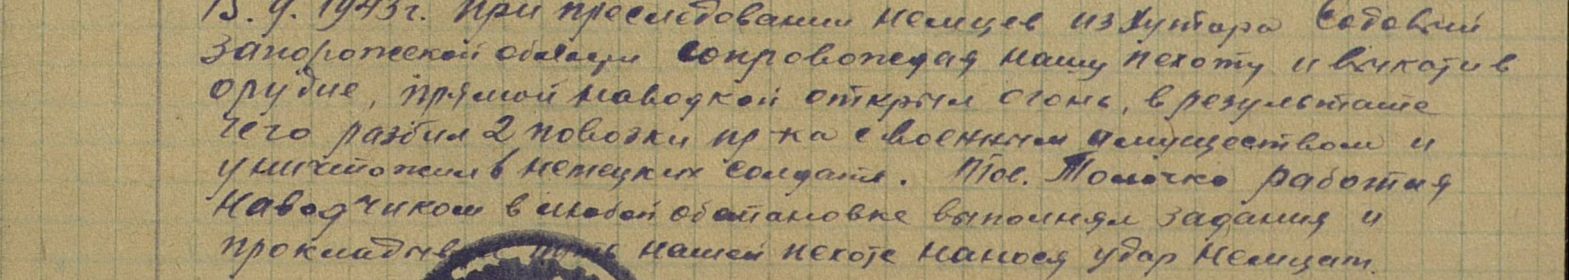 13.9.1943г. при преследовании немцев из Хутора Садовый
Запорожской области сопровождая нашу пехоту и выкотив
орудие, прямой наводкой открыл огонь, в результате
чего разбил 2 повозки пр-ка с военным имуществом и
уничтожил 6 немецких солдата. Тов. Толочко работая
Наводчиком в любой обстановке выполнял задания и
прокладывал путь нашей пехоте нанося удар Немцам.